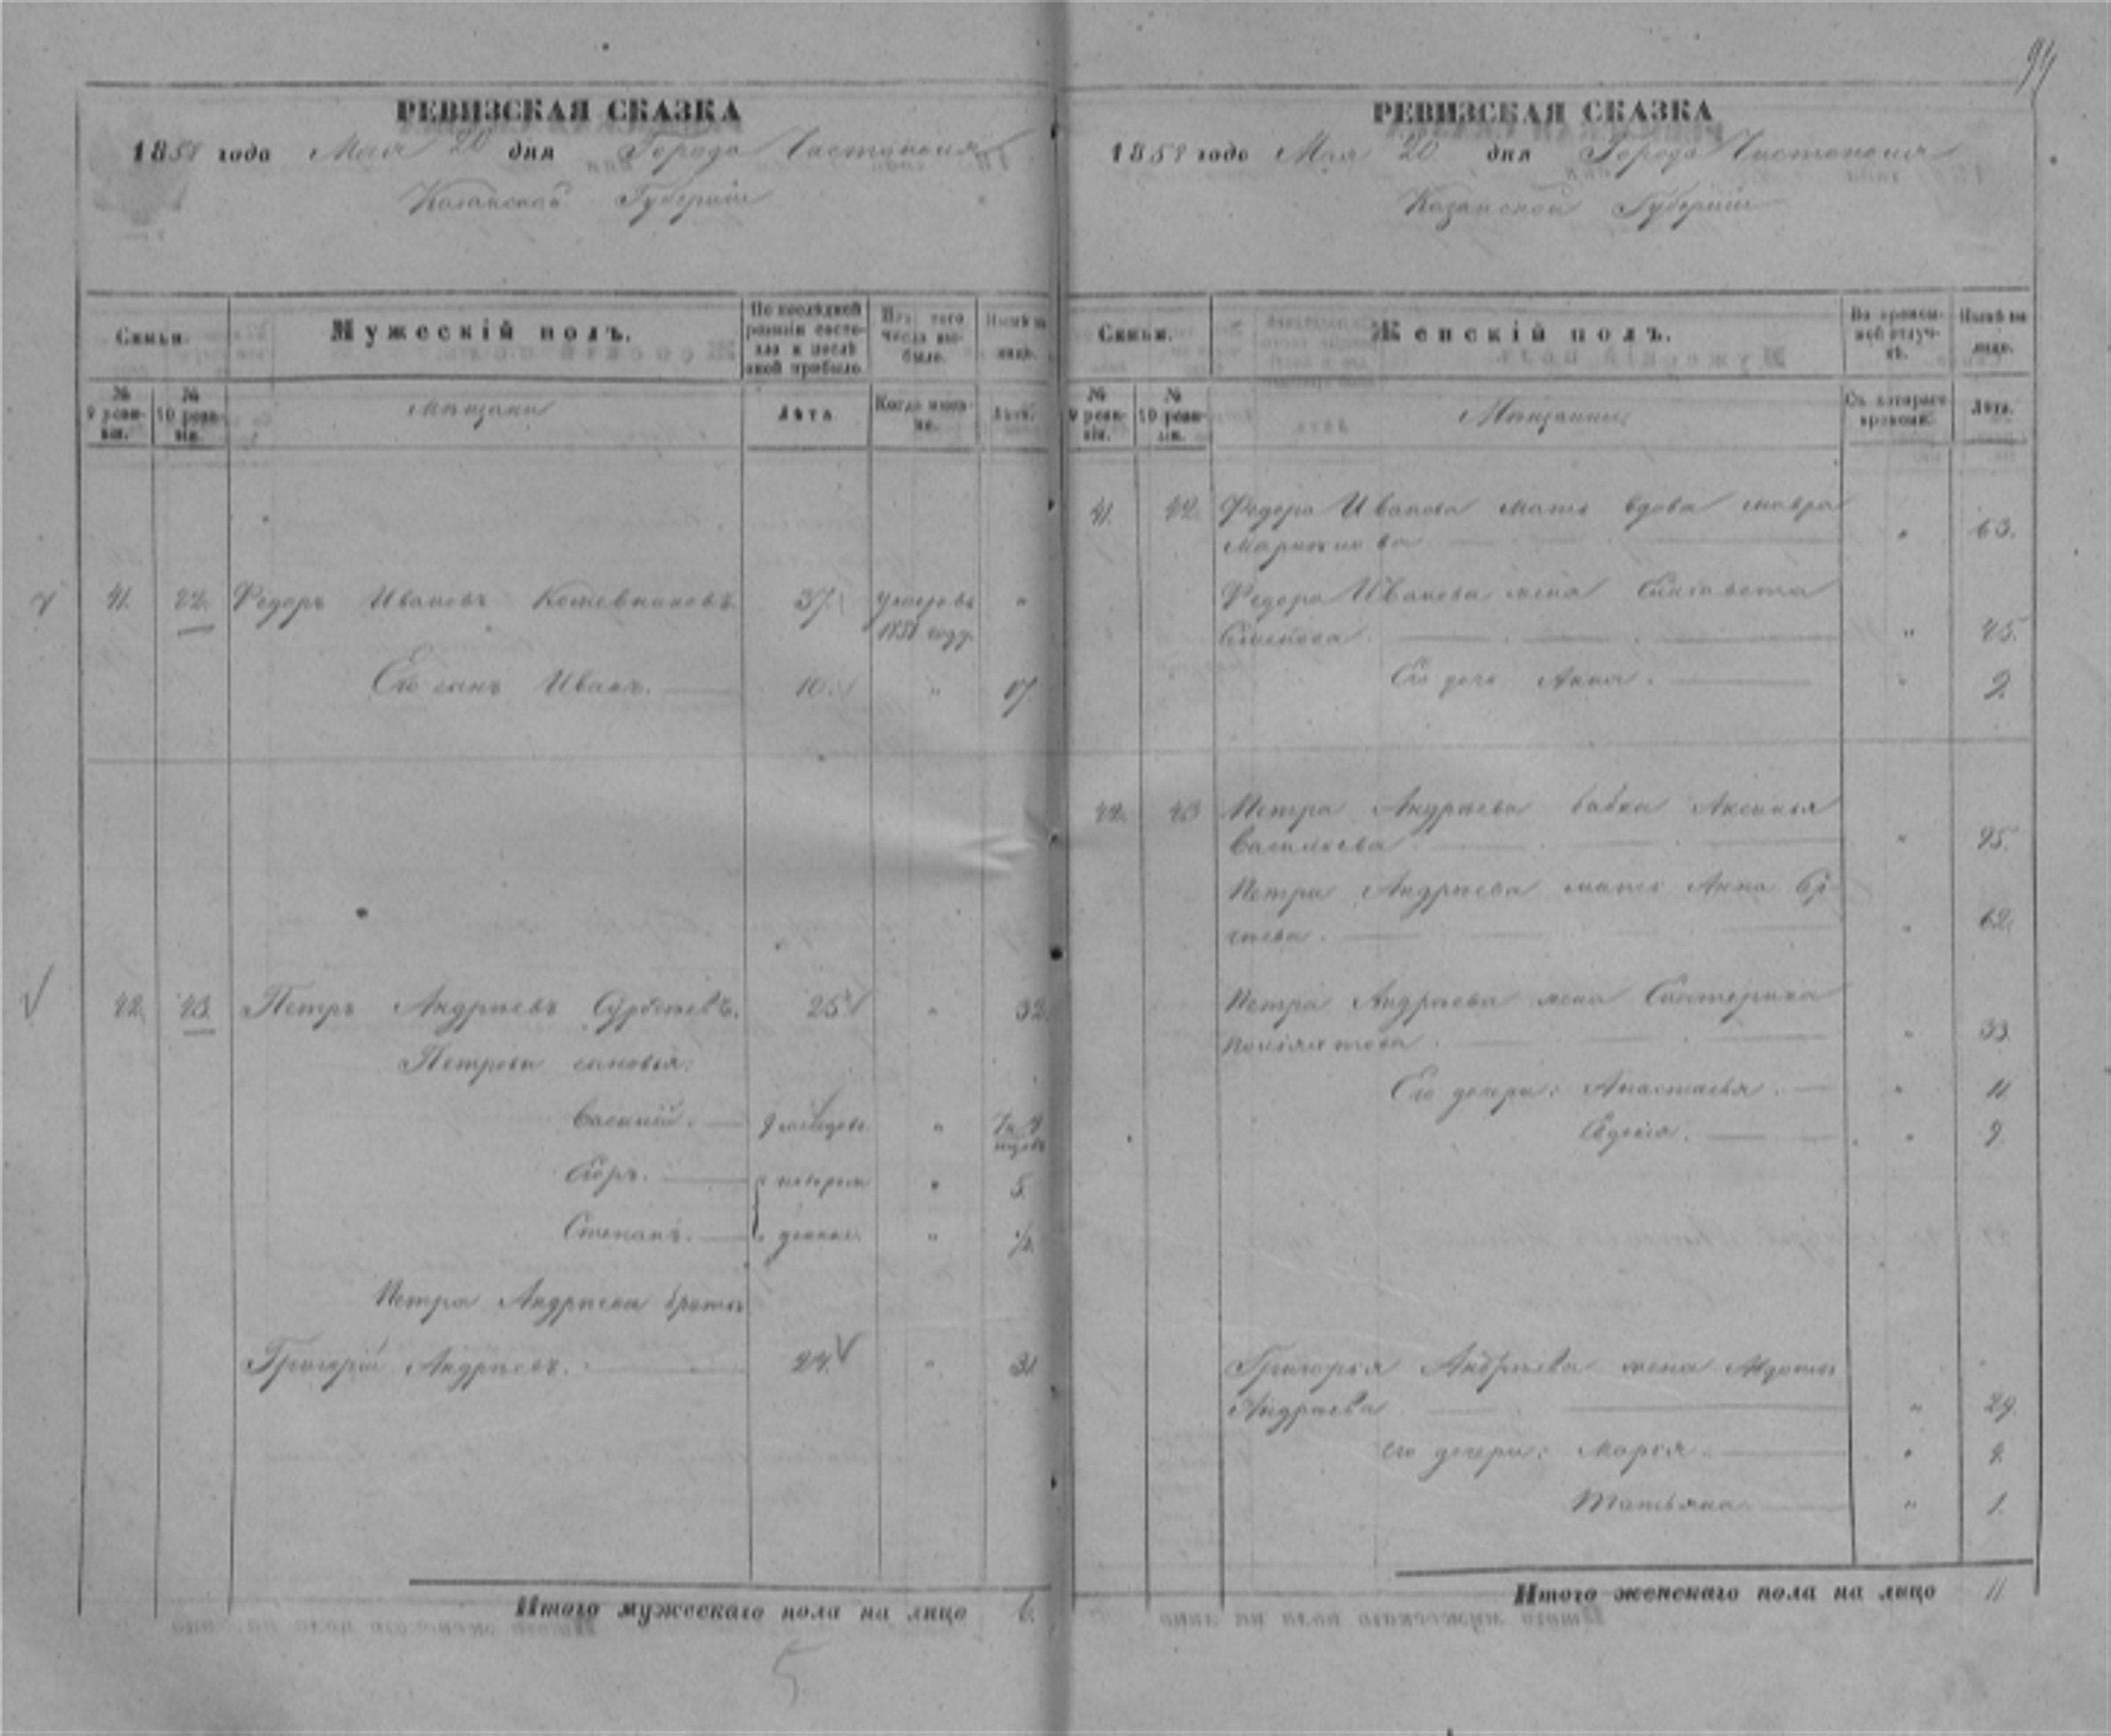 94
РЕВИЗСКАЯ СКАЗКА
1858 года Мая 20 дня Города Чистополя
Казанской Губерніи
Семьи.
Мужескій полъ.
По послѣдней ревизіи состояло и послѣ оной прибыло.
Изъ того числа выбыло.
Нынѣ на лицо.
№ 9 ревизіи.
№ 10 ревизіи.
Мѣщане
Лѣта.
Когда именно.
Лѣта.
41. 42. Федоръ Ивановъ 37. 1851 году "
Его сынъ Иванъ. 10. " 17.
42. 43. Петръ Андреевъ 25 " 32.
Петровы сыновья:
Василий. 9 месяцевъ "
Егоръ. новорож " 5.
Степанъ. денные " ½.
Петра Андреева братъ
Григорій Андреевъ. 24. " 31
Итого мужескаго пола на лицо 6.
5
РЕВИЗСКАЯ СКАЗКА
1858 года Мая 20 дня Города Чистополя
Казанской Губерніи
Семьи.
Женскій полъ.
Во временной отлучкѣ.
Нынѣ на лицо.
№ 9 ревизіи.
№ 10 ревизіи.
Мѣщанки
Съ котораго времени.
Лѣта.
41. 42. Федора Иванова мать вдова Мавра
" 63.
Федора Иванова жена Елизавета
" 45.
Его дочь Анна. " 9.
42. 43 Петра Андреева бабка Аксинья
Васильева " 95.
Петра Андреева мать Анна
" 62.
Петра Андреева жена Екатерина
" 33.
Его дочери: Анастасья. " 11
" 9.
Григорья Андреева жена Авдотья
Андреева " 29.
Его дочери: Марья. "
Татьяна " 1.
Итого женскаго пола на лицо 11